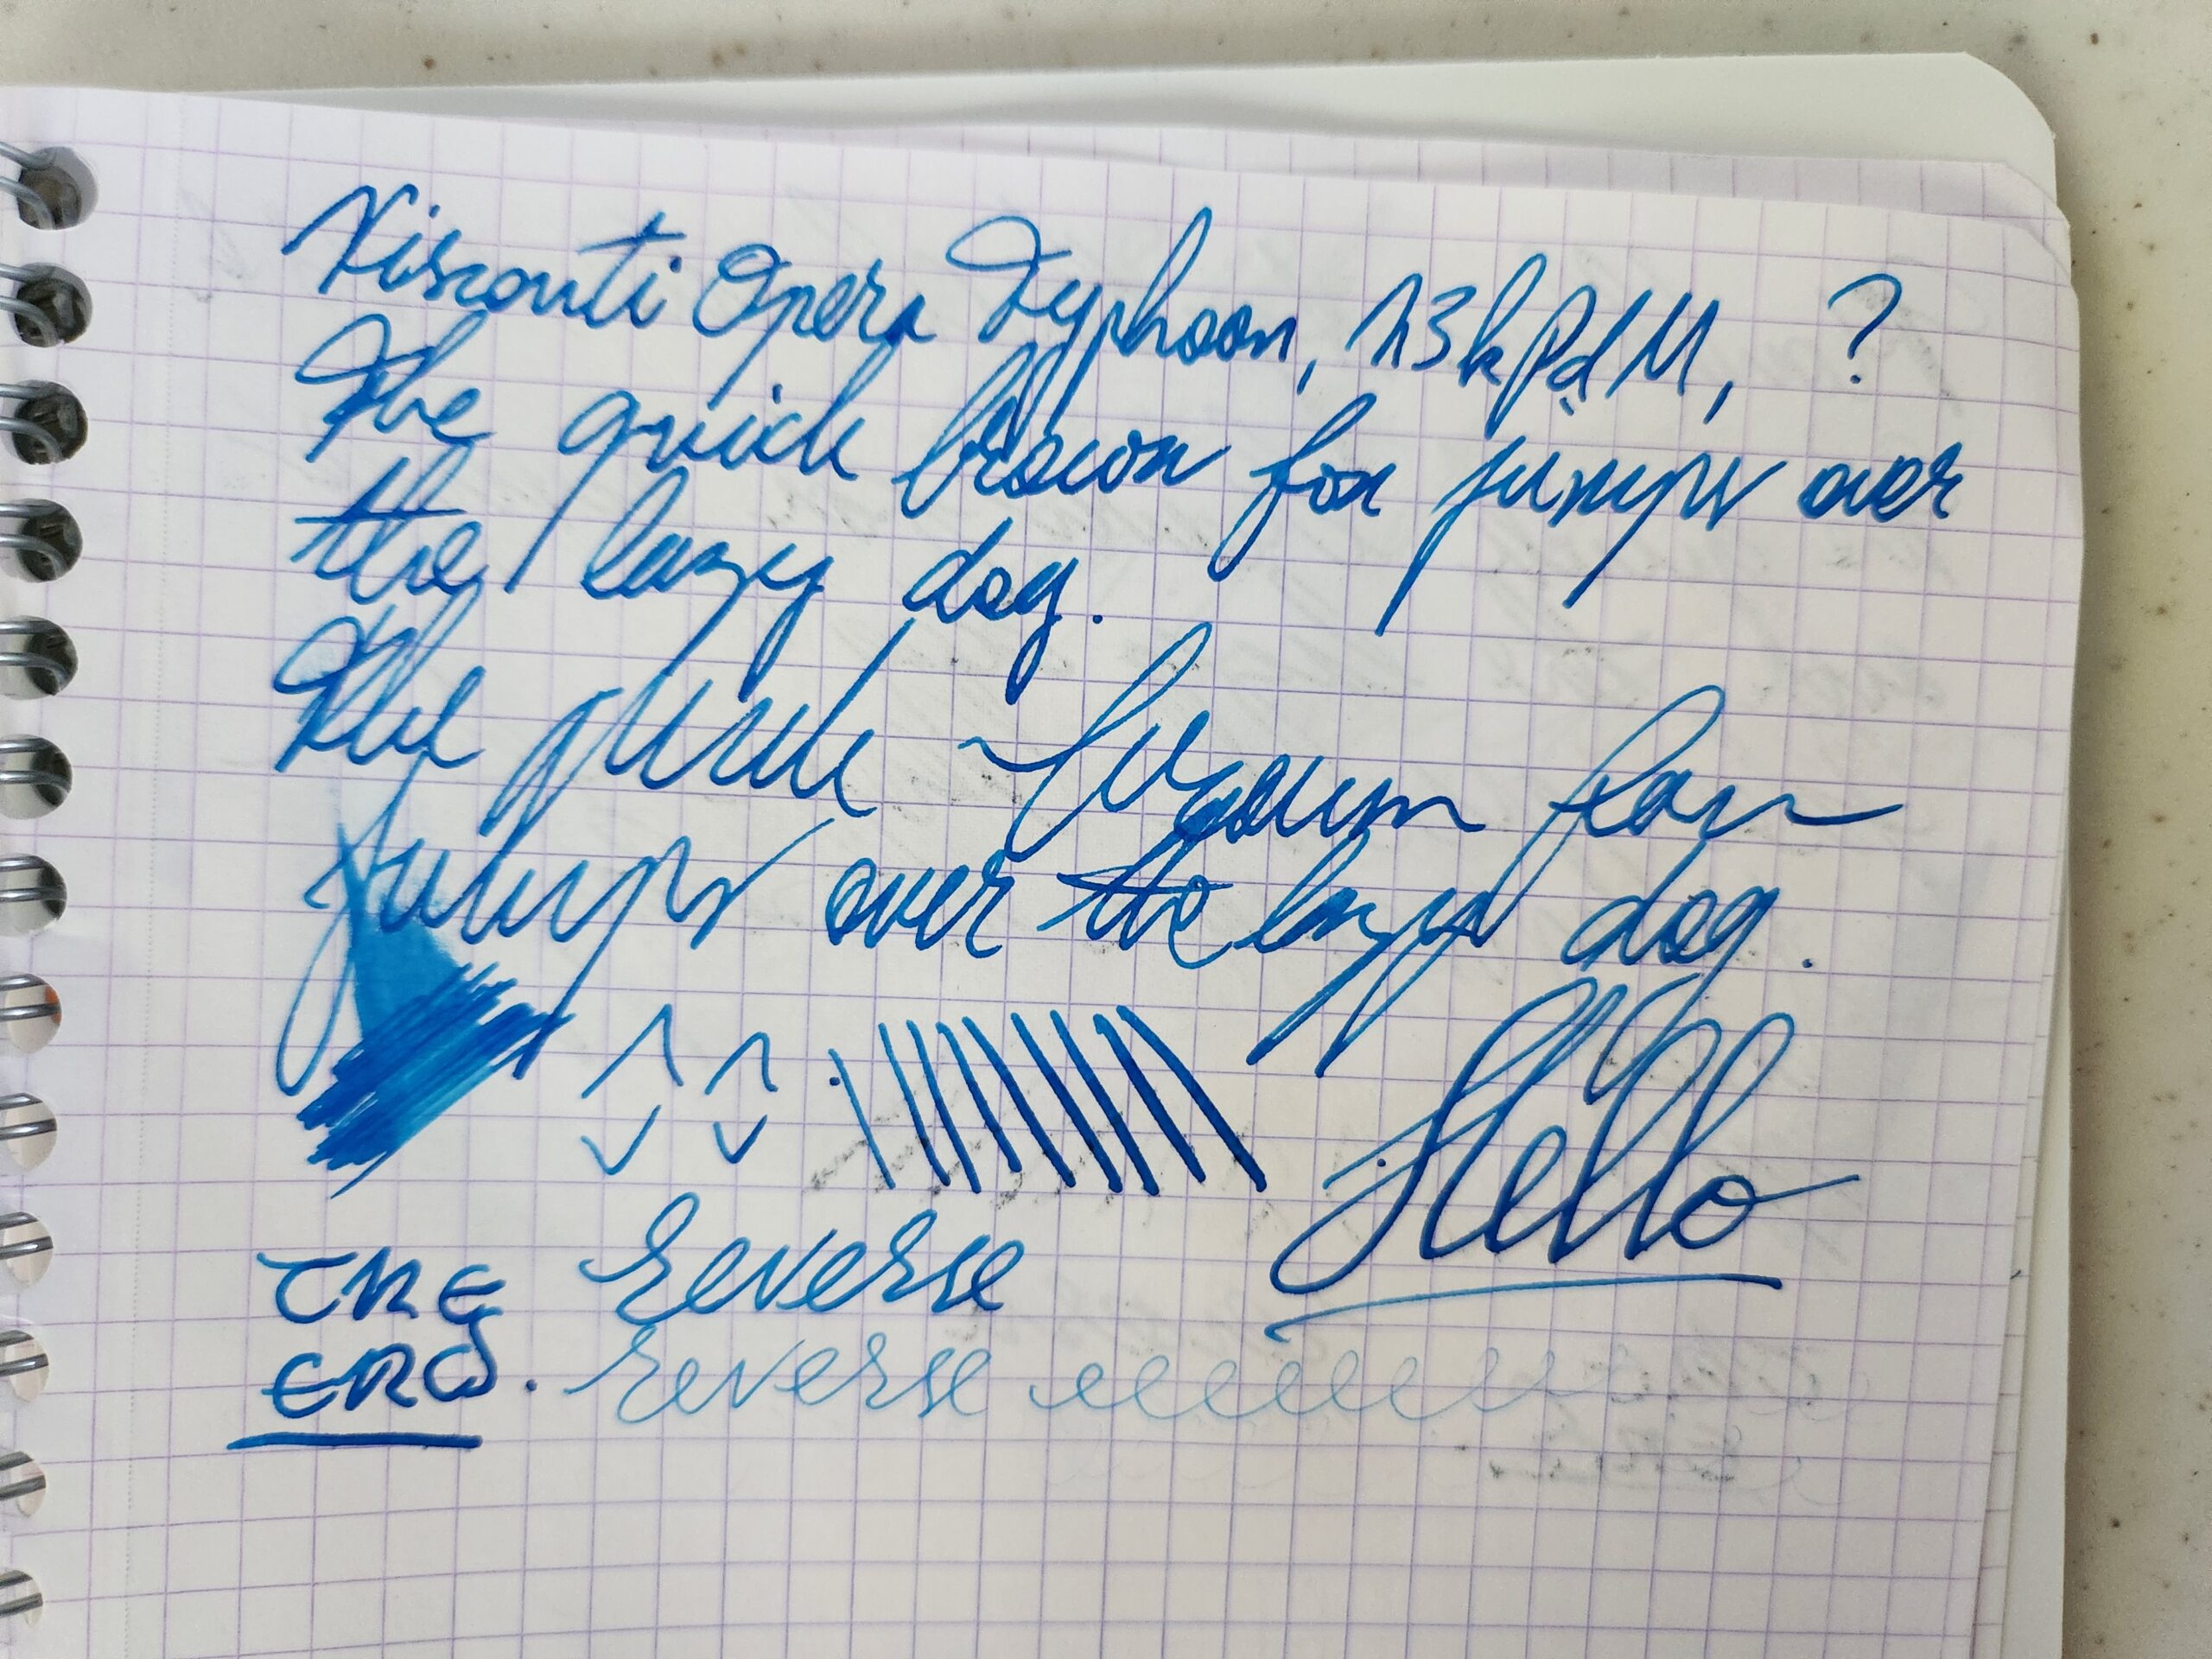 Visconti Opera Typhoon, 23kPd M, ?
The quick brown fox jumps over
the lazy dog.
The quick brown fox
jumps over the lazy dog.
Hello
THE reverse
END. reverse